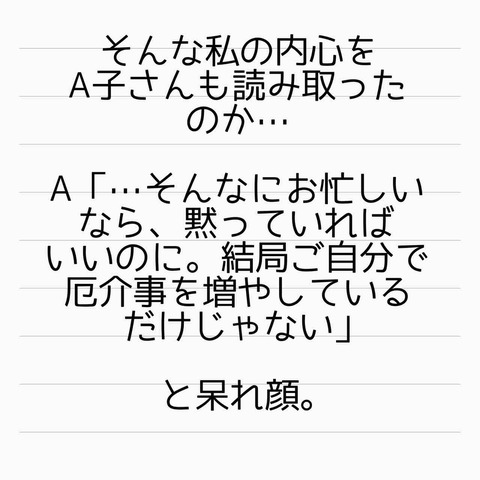 そんな私の内心を
A子さんも読み取った
のか…
A「…そんなにお忙しい
なら、黙っていれば
いいのに。結局ご自分で
厄介事を増やしている
だけじゃない」
と呆れ顔。